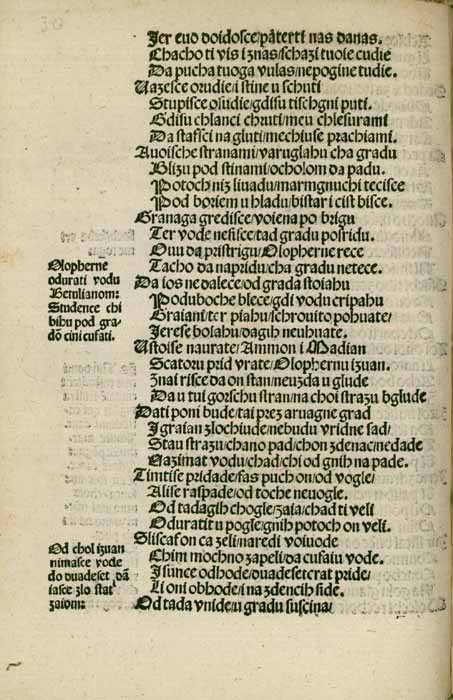 Jer evo doidosce/păterti nas danas.
Chacho ti vis i znas/schazi tuoie cudie
Da pucha tuoga vulas/ne pogine tudie.
Vazesce orudie/i stine u schuti
Stupisce oſudie/gdisu tischgni puti.
Gdisu chlanci chruti/meu chlesurami
Da staſſci na gluti/mechiuse prachiami.
Avoische stranami/varuglahu cha gradu
Blizu pod stinami/ocholom da padu.
Potoch niz livadu/marmgnuchi tecisce
Pod boriem u hladu/bistar i cist bisce.
Granaga gredisce/voiena po brigu
Ter vode nesisce/tad gradu posridu.
Ovu da pristrigu/Olopherne rece
Tacho da napridu/cha gradu netece.
Da ios ne dalece/od grada stoiahu
Poduboche blece/gdi vodu cripahu
Graiani/ter piahu/schrovito pohvate/
Jerese bolahu/dagih neuhvate.
Ustoise naurate/Ammon i Madian
Scatoru prid vrate/Olophernu izvan.
Znai risce da on stan/neuzda u glude
Da u tui gorschu stran/na choi strazu bglude
Dati poni bude/tai prez arvagne grad
I graian zlochiude/nebudu vridne sad/
Stav strazu/chano pad/chon zdenac/nedade
Nazimat vodu/chad/chi od gnih na pade.
Timtise pridade/ſas puch on/od vogle/
Alise raſpade/od toche nevogle.
Od tadagih chogle/zaia/chad ti veli
Oduratit u pogle/gnih potoch on veli.
Sliscaſ on ca zeli/naredi voivode
Chim mochno zapeli/da cufaiu vode.
I sunce odhode/dvadesetcrat pride/
Ti oni obhode/i na zdencih side.
Od tada vnide/u gradu suscina/
Olopherne
odurati vodu
Betulianom:
Studence chi
bihu pod gra-
dō cini cufati.
Od chol izvan
nimasce vode
do dvadeset dā
iasce zlo stat
zaiom: